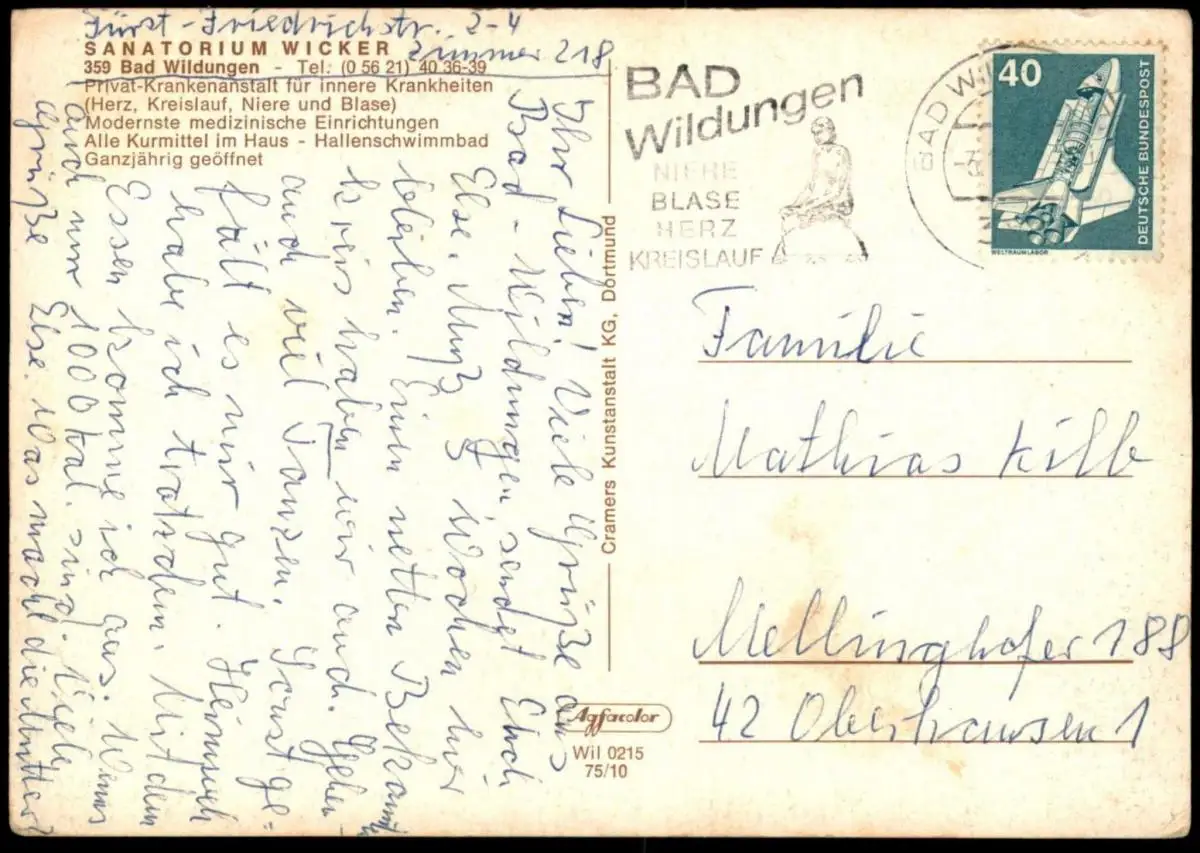 Fürst-Friedrichstr. 2-4
Zimmer 218
SANATORIUM WICKER
359 Bad Wildungen - Tel. (0 56 21) 40 36-39
Privat-Krankenanstalt für innere Krankheiten
(Herz, Kreislauf, Niere und Blase)
Modernste medizinische Einrichtungen
Alle Kurmittel im Haus - Hallenschwimmbad
Ganzjährig geöffnet
Ihr Lieben! Viele Grüße aus
Bad-Wildungen, sendet Euch
Else. Muß 3 Wochen hier
bleiben. Einen netten Bekannt
kreis haben wir auch. Gehen
auch viel Tanzen. Sonst ge=
fält es mir gut. Heimweh
habe ich trotzdem. Mit dem
Essen komme ich aus. Wenn
auch nur 1000 kal. sind. Viele
Grüße Else. Was macht die Mutter?
Cramers Kunstanstalt KG, Dortmund
Agfacolor
Wil 0215
75/10
BAD
Wildungen
NIERE
BLASE
HERZ
KREISLAUF
BAD WIL
40
DEUTSCHE BUNDESPOST
WELTRAUMLABOR
Familie
Mathias Kilb
Mellinghofer 188
42 Oberhausen 1